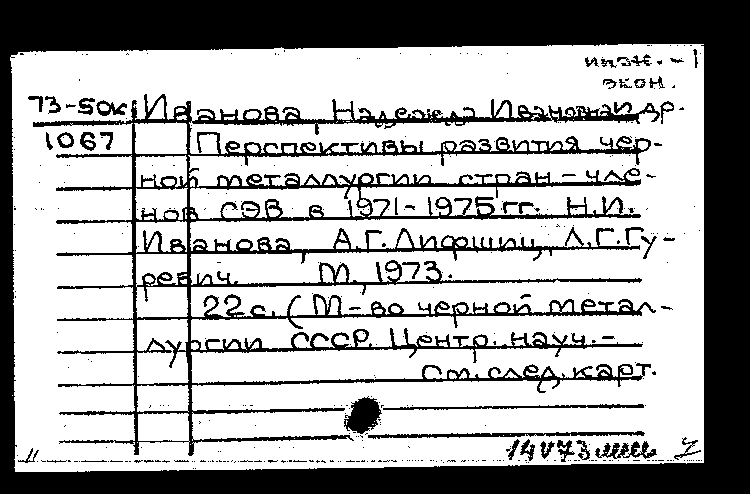 инж. -
экон.
73-50к Иванова, Надежда Ивановна и др.
1067 Перспективы развития чер-
ной металлургии стран - чле-
нов СЭВ в 1971-1975 гг. Н.И.
Иванова, А.Г. Лифшиц, Л.Г. Гу-
ревич. М., 1973.
22 с. (М-во черной метал-
лургии СССР. Центр. науч.-
См. след. карт.
14 V 73